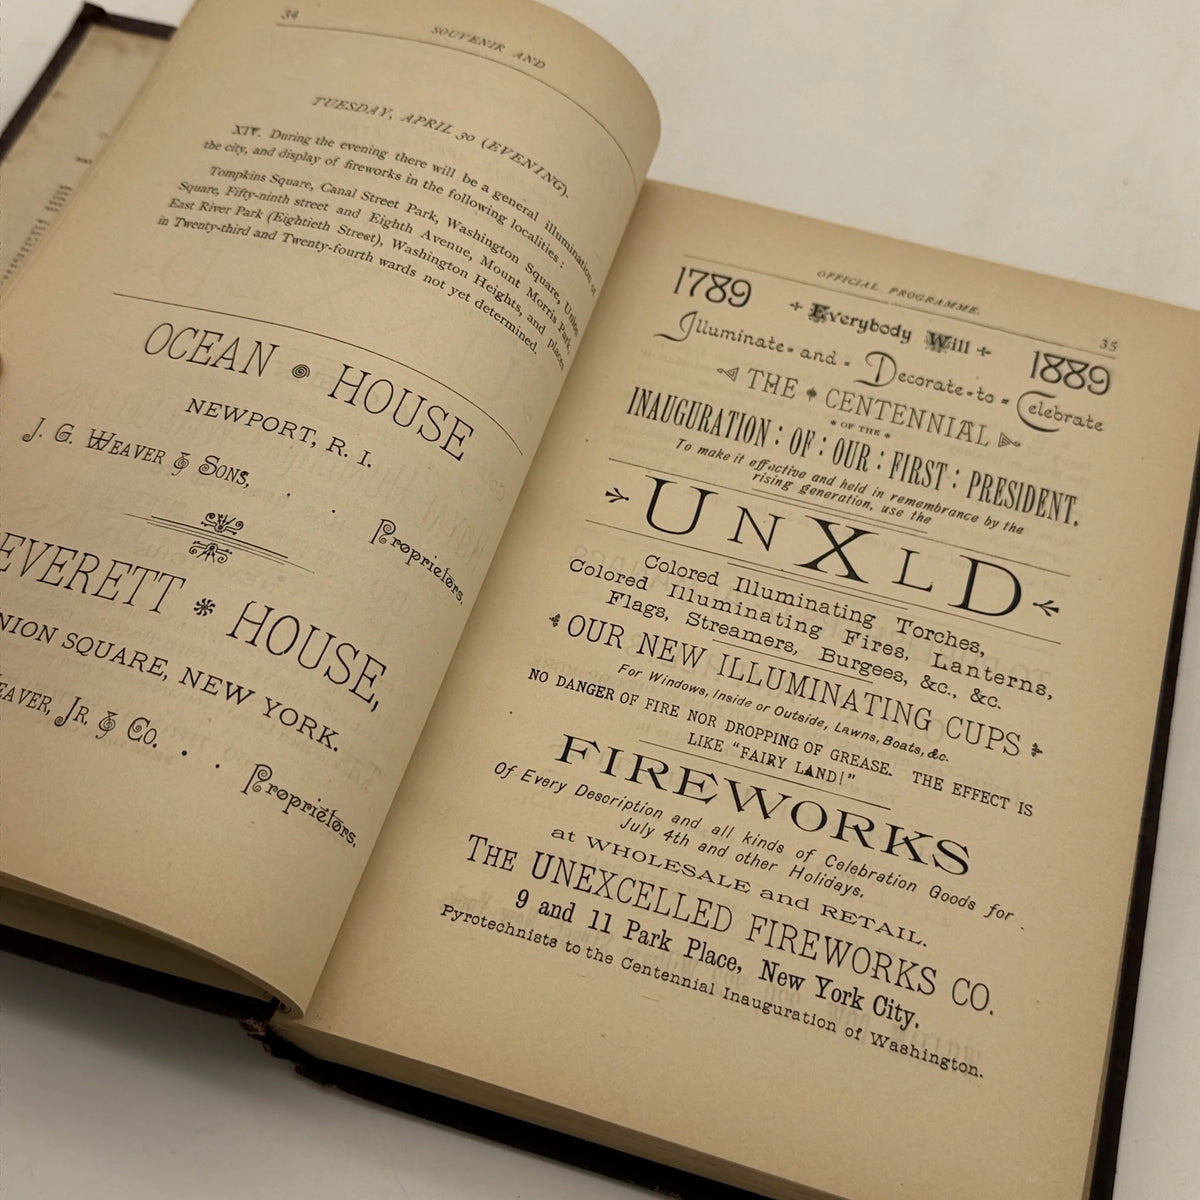 34
SOUVENIR AND
TUESDAY, APRIL 30 (EVENING).
XIV. During the evening there will be a general illumination of
the city, and display of fireworks in the following localities:
Tompkins Square, Canal Street Park, Washington Square, Union
Square, Fifty-ninth street and Eighth Avenue, Mount Morris Park,
East River Park (Eightieth Street), Washington Heights, and places
in Twenty-third and Twenty-fourth wards not yet determined.
OCEAN HOUSE
NEWPORT, R. I.
J. G. WEAVER & SONS,
Proprietors.
EVERETT HOUSE,
NION SQUARE, NEW YORK.
EAVER, JR. & CO.
Proprietors.
OFFICIAL PROGRAMME.
35
1789 Everybody Will 1889
Illuminate-and-Decorate-to-Celebrate
THE CENTENNIAL
OF THE
INAUGURATION : OF : OUR : FIRST : PRESIDENT.
To make it effective and held in remembrance by the
rising generation, use the
UNXLD
Colored Illuminating Torches,
Colored Illuminating Fires, Lanterns,
Flags, Streamers, Burgees, &c., &c.
OUR NEW ILLUMINATING CUPS
For Windows, Inside or Outside, Lawns, Boats, &c.
NO DANGER OF FIRE NOR DROPPING OF GREASE. THE EFFECT IS
LIKE "FAIRY LAND!"
FIREWORKS
Of Every Description and all kinds of Celebration Goods for
July 4th and other Holidays,
at WHOLESALE and RETAIL.
THE UNEXCELLED FIREWORKS CO.
9 and 11 Park Place, New York City.
Pyrotechnists to the Centennial Inauguration of Washington.